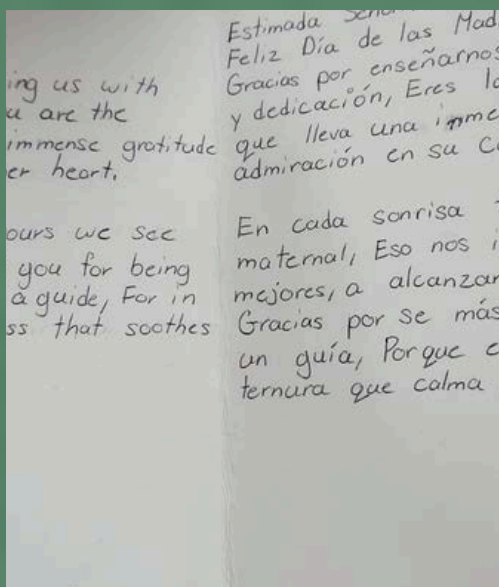 ing us with
u are the
immense gratitude
er heart.
ours we see
you for being
a guide, For in
ss that soothes
Estimada
Feliz Día de las Mad
Gracias por enseñarnos
y dedicación, Eres la
que lleva una inme
admiración en su C
En cada sonrisa
maternal, Eso nos i
mejores, a alcanzar
Gracias por se más
un guía, Porque e
ternura que calma